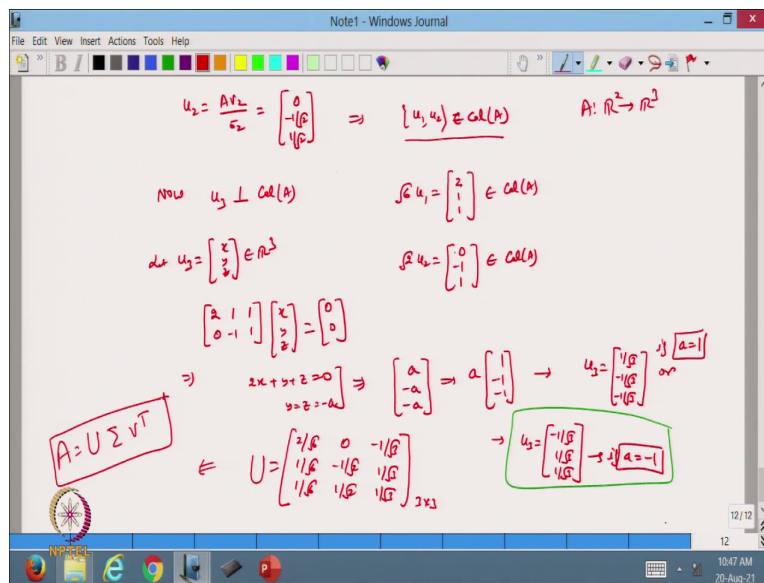 Note1 - Windows Journal
File Edit View Insert Actions Tools Help
B I
u₂ = Av₂/σ₂ = [0; -1/√2; 1/√2] ⇒ {u₁, u₂} ∈ Col(A) A: ℝ² → ℝ³
Now u₃ ⊥ Col(A) √6 u₁ = [2; 1; 1] ∈ Col(A)
Let u₃ = [x; y; z] ∈ ℝ³ √2 u₂ = [0; -1; 1] ∈ Col(A)
[2 1 1; 0 -1 1] [x; y; z] = [0; 0]
⇒ 2x+y+z=0, y=z=-a ⇒ [a; -a; -a] ⇒ a [1; -1; -1] → u₃ = [1/√3; -1/√3; -1/√3] if a=1 or
→ u₃ = [-1/√3; 1/√3; 1/√3] → if a=-1
A = U Σ Vᵀ ⇐ U = [2/√6 0 -1/√3; 1/√6 -1/√2 1/√3; 1/√6 1/√2 1/√3] 3x3
NPTEL
12/12
12
10:47 AM
20-Aug-21